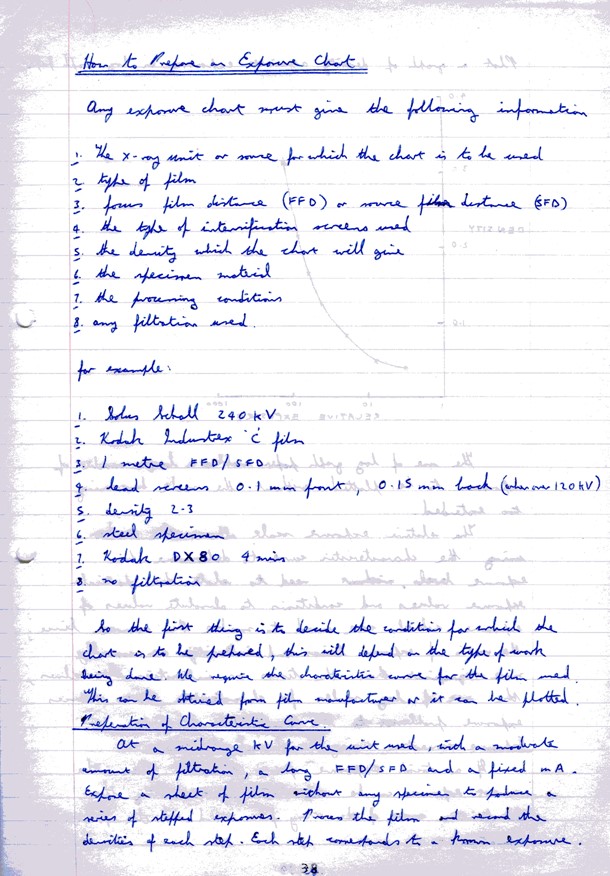 How to Prepare an Exposure Chart
Any exposure chart must give the following information
1. the x-ray unit or source for which the chart is to be used
2. type of film
3. focus film distance (FFD) or source film distance (SFD)
4. the type of intensification screens used
5. the density which the chart will give
6. the specimen material
7. the processing conditions
8. any filtration used.
for example:
1. Solus Schall 240 kV
2. Kodak Industrex 'C' film
3. 1 metre FFD/SFD
4. lead screens 0.1 mm front, 0.15 mm back (when over 120 kV)
5. density 2.3
6. steel specimen
7. Kodak DX80 4 mins
8. no filtration
So the first thing is to decide the conditions for which the
chart is to be prepared, this will depend on the type of work
being done. We require the characteristic curve for the film used.
This can be obtained from film manufacturer or it can be plotted.
Preparation of Characteristic Curve.
At a midrange kV for the unit used, with a moderate
amount of filtration, a long FFD/SFD and a fixed mA.
Expose a sheet of film without any specimen to produce a
series of stepped exposures. Process the film and record the
densities of each step. Each step corresponds to a known exposure.
38